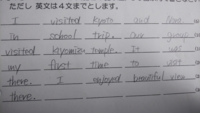 ただし 英文は4文までとします。
I visited Kyoto and Nara
in school trip. Our group
visited kiyomizu temple. It was
my first time to visit
there. I enjoyed beautiful view
there.